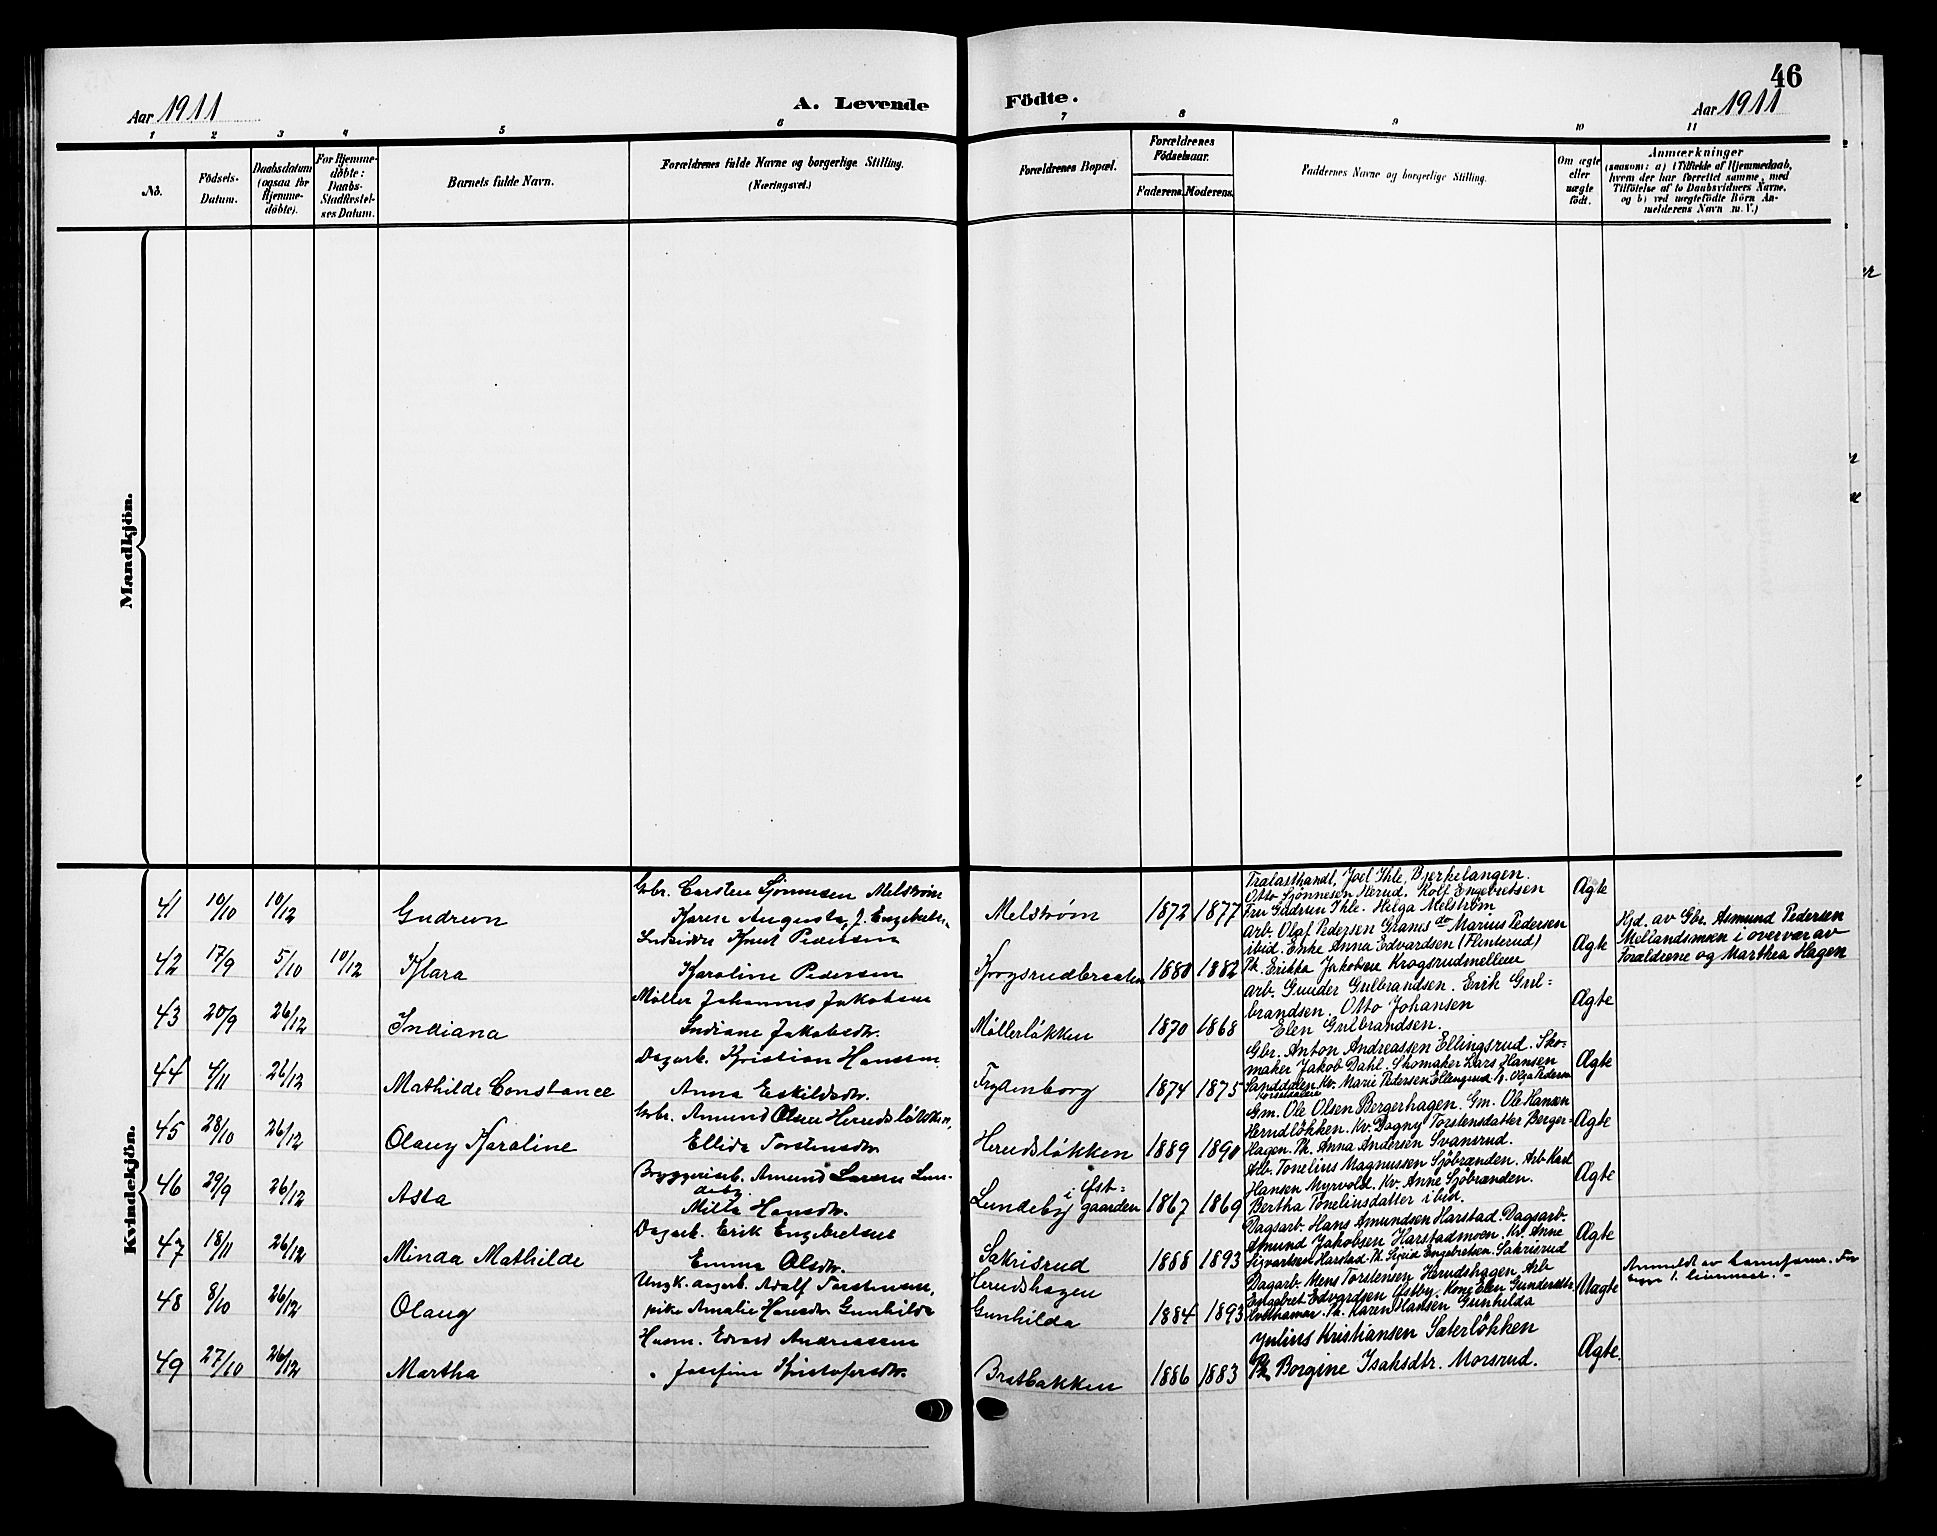 46
Aar 1911
A. Levende
Födte.
Aar 1911
1 2 3 4 5 6 7 8 9 10 11
No.
Födsels-
Datum.
Daabsdatum
(ogsaa for
Hjemme-
döbte).
For Hjemme-
döbte:
Daabs-
Stadfæstel-
ses Datum.
Barnets fulde Navn.
Forældrenes fulde Navne og borgerlige Stilling.
(Næringsvei.)
Forældrenes Bopæl.
Forældrenes
Födselsaar.
Faderens. Moderens.
Faddernes Navne og borgerlige Stilling.
Om ægte
eller
uægte
født.
Anmærkninger
(saasom: a) i Tilfælde af Hjemmedaab,
hvem der har forrettet samme, med
Tilföielse af to Daabsvidners Navne,
og b) ved uægtefödte Börn An-
melderens Navn m. V.)
Mandkjön.
Kvindekjön.
41 10/10 10/12 Gudrun
Gbr. Carsten Sjønnesen Melstrøm
Karen Augusta, J. Engebrets.
Melstrøm 1872 1877
Tralasthandl. Joel Ihle, Bjerkelangen.
Otto Sjønnesen Nerud. Rolf Engebretsen
Fru Gudrun Ihle. Helga Melstrøm
Ægte
42 17/9 5/10 10/12 Klara
Indsidder Knut Pedersen
Karoline Pedersen
Krogsrudbraaten 1880 1882
Arb. Olaf Pedersen Granis do Marius Pedersen
ibid. Enke Anna Edvardsen (Flinterud)
Pk. Erikka Jakobsen Krogsrudmellem
Ægte
Hjd. av Gbr. Asmund Pedersen
Mellandsmoen i overvær av
Forældrene og Marthea Hagen
43 20/9 26/12 Indiana
Møller Johannes Jakobsen
Indiane Jakobsdtr.
Møllerløkken 1870 1868
Arb. Gunder Gulbrandsen. Erik Gul=
brandsen. Otto Johansen
Elen Gulbrandsen.
Ægte
44 4/11 26/12 Mathilde Constance
Dagarb. Kristian Hansen
Anna Eskildsdtr.
Frydenborg 1874 1875
Gbr. Anton Andreassen Ellingsrud. Sko-
maker Jakob Dahl. Skomaker Lars Hansen
Sanddalen Kv. Marie Pedersen Ellingsrud Pk. Olga Pedersen
Ægte
45 28/10 26/12 Olaug Karoline
Gbr. Amund Olsen Herudsløkken,
Ellida Torstensdtr.
Herudsløkken 1889 1890
Gm. Ole Olsen Bergerhagen. Gm. Ole Hansen
Herudløkken. Kv. Dagny Torstensdatter Berger-
hagen. Pk. Anna Andersen Svansrud.
Ægte
46 29/9 26/12 Asta
Bryggeriarb. Amund Larsen Lun-
deby
Milla Hansdtr.
Lundeby i Øst-
gaarden 1867 1869
Arb. Tonelius Magnussen Sjöbranden. Arb. Karl
Hansen Myrvold. Kv. Anne Sjöbranden.
Bertha Toneliusdatter ibid.
Ægte
47 18/11 26/12 Minda Mathilde
Dagarb. Erik Engebretsen
Emma Olsdtr.
Sakrisrud 1888 1893
Dagsarb. Hans Amundsen Harstad. Dagsarb.
Amund Jakobsen Harstadmoen. Kv. Anne
Sigvartsen Harstad. Pk. Sigrid Engebretsen. Sakrisrud
Ægte
48 8/10 26/12 Olaug
Ungk. dagarb. Adolf Torstensen,
pike Amalie Hansdtr Gunhilda
Herudshagen
Gunhilda 1884 1893
Dagarb. Mens Torstensen Herudshagen. Arb
Engebret Edvardsen Østby. Kone Elen Gundersdtr.
Pk. Karen Hansen Gunhilda
Uægte
Anmeldt av barnefaren. For
begge 1. leiermaal.
49 27/10 26/12 Martha
Husm. Edvard Andreassen
Josefine Kristofersdtr.
Bratbakken 1886 1883
Julius Kristiansen Sæterløkken
Pk. Borgine Isaksdtr. Morsrud.
Ægte.